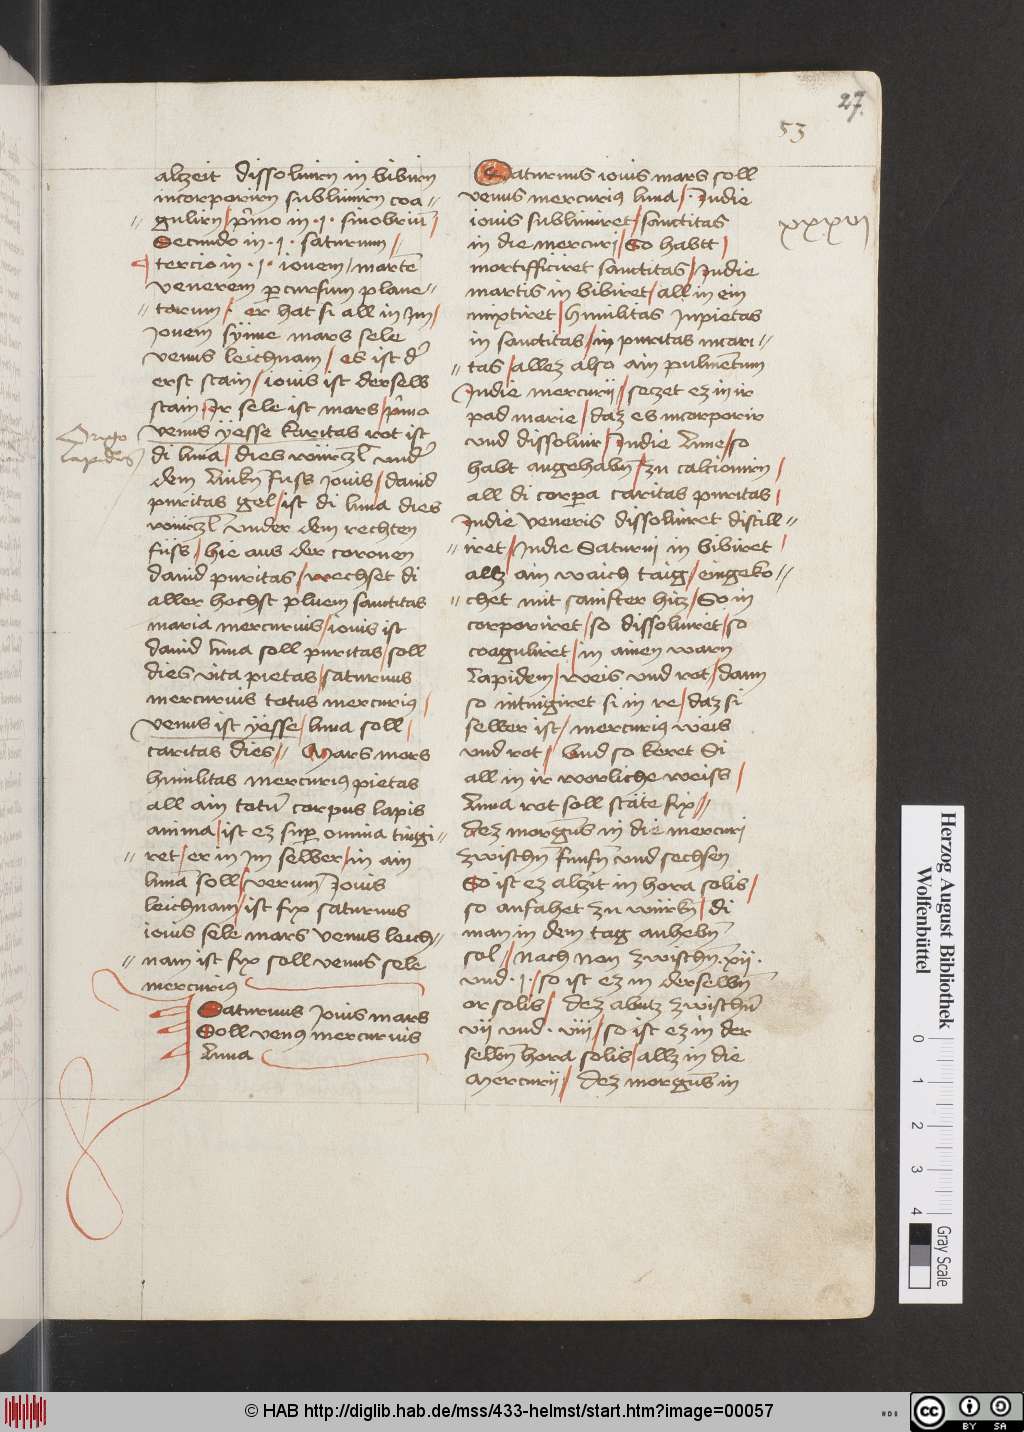 27.
53
altzeit dissoluirn in bibirn
incorporirn sublimirn coa=
= gulirn / p̄mo in · i · sinobriū /
Secundo in · i · saturnum /
tercio in · i · iouem / martē
venerem ꝑcursum plane=
= torum / er hat si all in Im /
Iouem syͤme mars sele
venus leichnam / es ist d'
erst stain / iouis ist derselb
stain Ir sele ist mars / p̄mo
venus yesse karitas rot ist
di luna / dies wurczl̄ vnd'
dem linkn̄ fuss Iouis / dauid
puritas gel / ist di luna dies
wurczl̄ vnder dem rechten
fuss / hie aus der coronen
dauid puritas / wechset di
aller hochst pluem sanctitas
maria mercurius / iouis ist
dauid luna soll puritas / soll
dies vita pietas / saturnus
mercurius totus mercuriꝰ /
venus ist yesse / luna soll /
caritas dies // Mars mors
humilitas mercuriꝰ pietas
all ain totū corpus lapis
anima / ist ez suꝑ omnia tingi=
= ret / er in Im selber / in ain
lunā soll / verum̄ Iouis
leichnam / ist fix saturnus
iouis sele mars venus leich=
= nam ist fix soll venus sele
mercuriꝰ
Saturnus Iouis mars
Soll venꝰ mercurius
Luna
Origo
lapidis
Saturnus iouis mars soll
venus mercuriꝰ luna / · Indie
iouis sublimiret / sanctitas
in die mercuri / So habtt /
mortifficiret sanctitas / Indie
martis in bibiret / all in ein
mixtiret / humilitas Inpietas
in sanctitas / in puritas incari=
= tas / allez also ain pulmentum
Indie mercurii / seczet ez in ir
pad marie / daz es incorporir
vnd dissoluir / Indie lune / so
habt angehabn̄ / zu calcionirn /
all di corꝑa caritas puritas /
Indie veneris dissoluiret distill=
= iret / Indie Saturni in bibiret /
allz ain waich taig / eingeko=
= chet mit sanfter hicz / So in
corporiret / so dissoluret / so
coaguliret / in ainen warn
Lapidem / weis vnd rot / dann
so intingiret si in re / daz si
selber ist / mercuriꝰ weis
vnd rot / Vnd so keret Si
all in ir worliche weiss /
Luna rot soll stäte fix //
dez morgn̄s in die mercuri
zwischn̄ funfn̄ vnd sechsen
So ist ez alzit in hora solis /
so anfahet zu wurkn̄ / di
man in dem tag anhebn̄
sol // nach non zwischn̄ · xij ·
vnd · i · / so ist ez in derselbn̄
or solis / dez abntz zwischn̄
vij vnd · viij / so ist ez in der
selbn̄ hora solis / allz in die
Mercurij / dez morgn̄s in
xxxvi
Herzog August Bibliothek
Wolfenbüttel
0 1 2 3 4
Gray Scale
© HAB http://diglib.hab.de/mss/433-helmst/start.htm?image=00057
HDB
cc BY SA